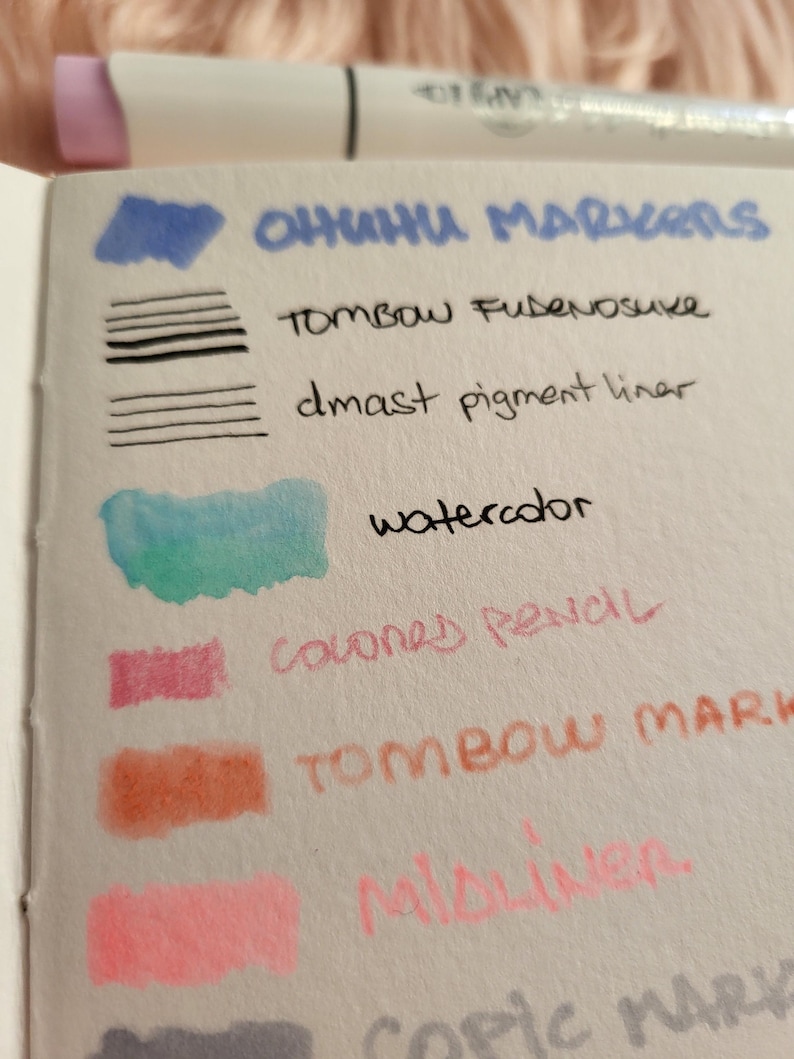 OHUHU MARKERS
TOMBOW FUDENOSUKE
dmast pigment liner
watercolor
COLORED PENCIL
TOMBOW MARK
MIDLINER
COPIC MARK